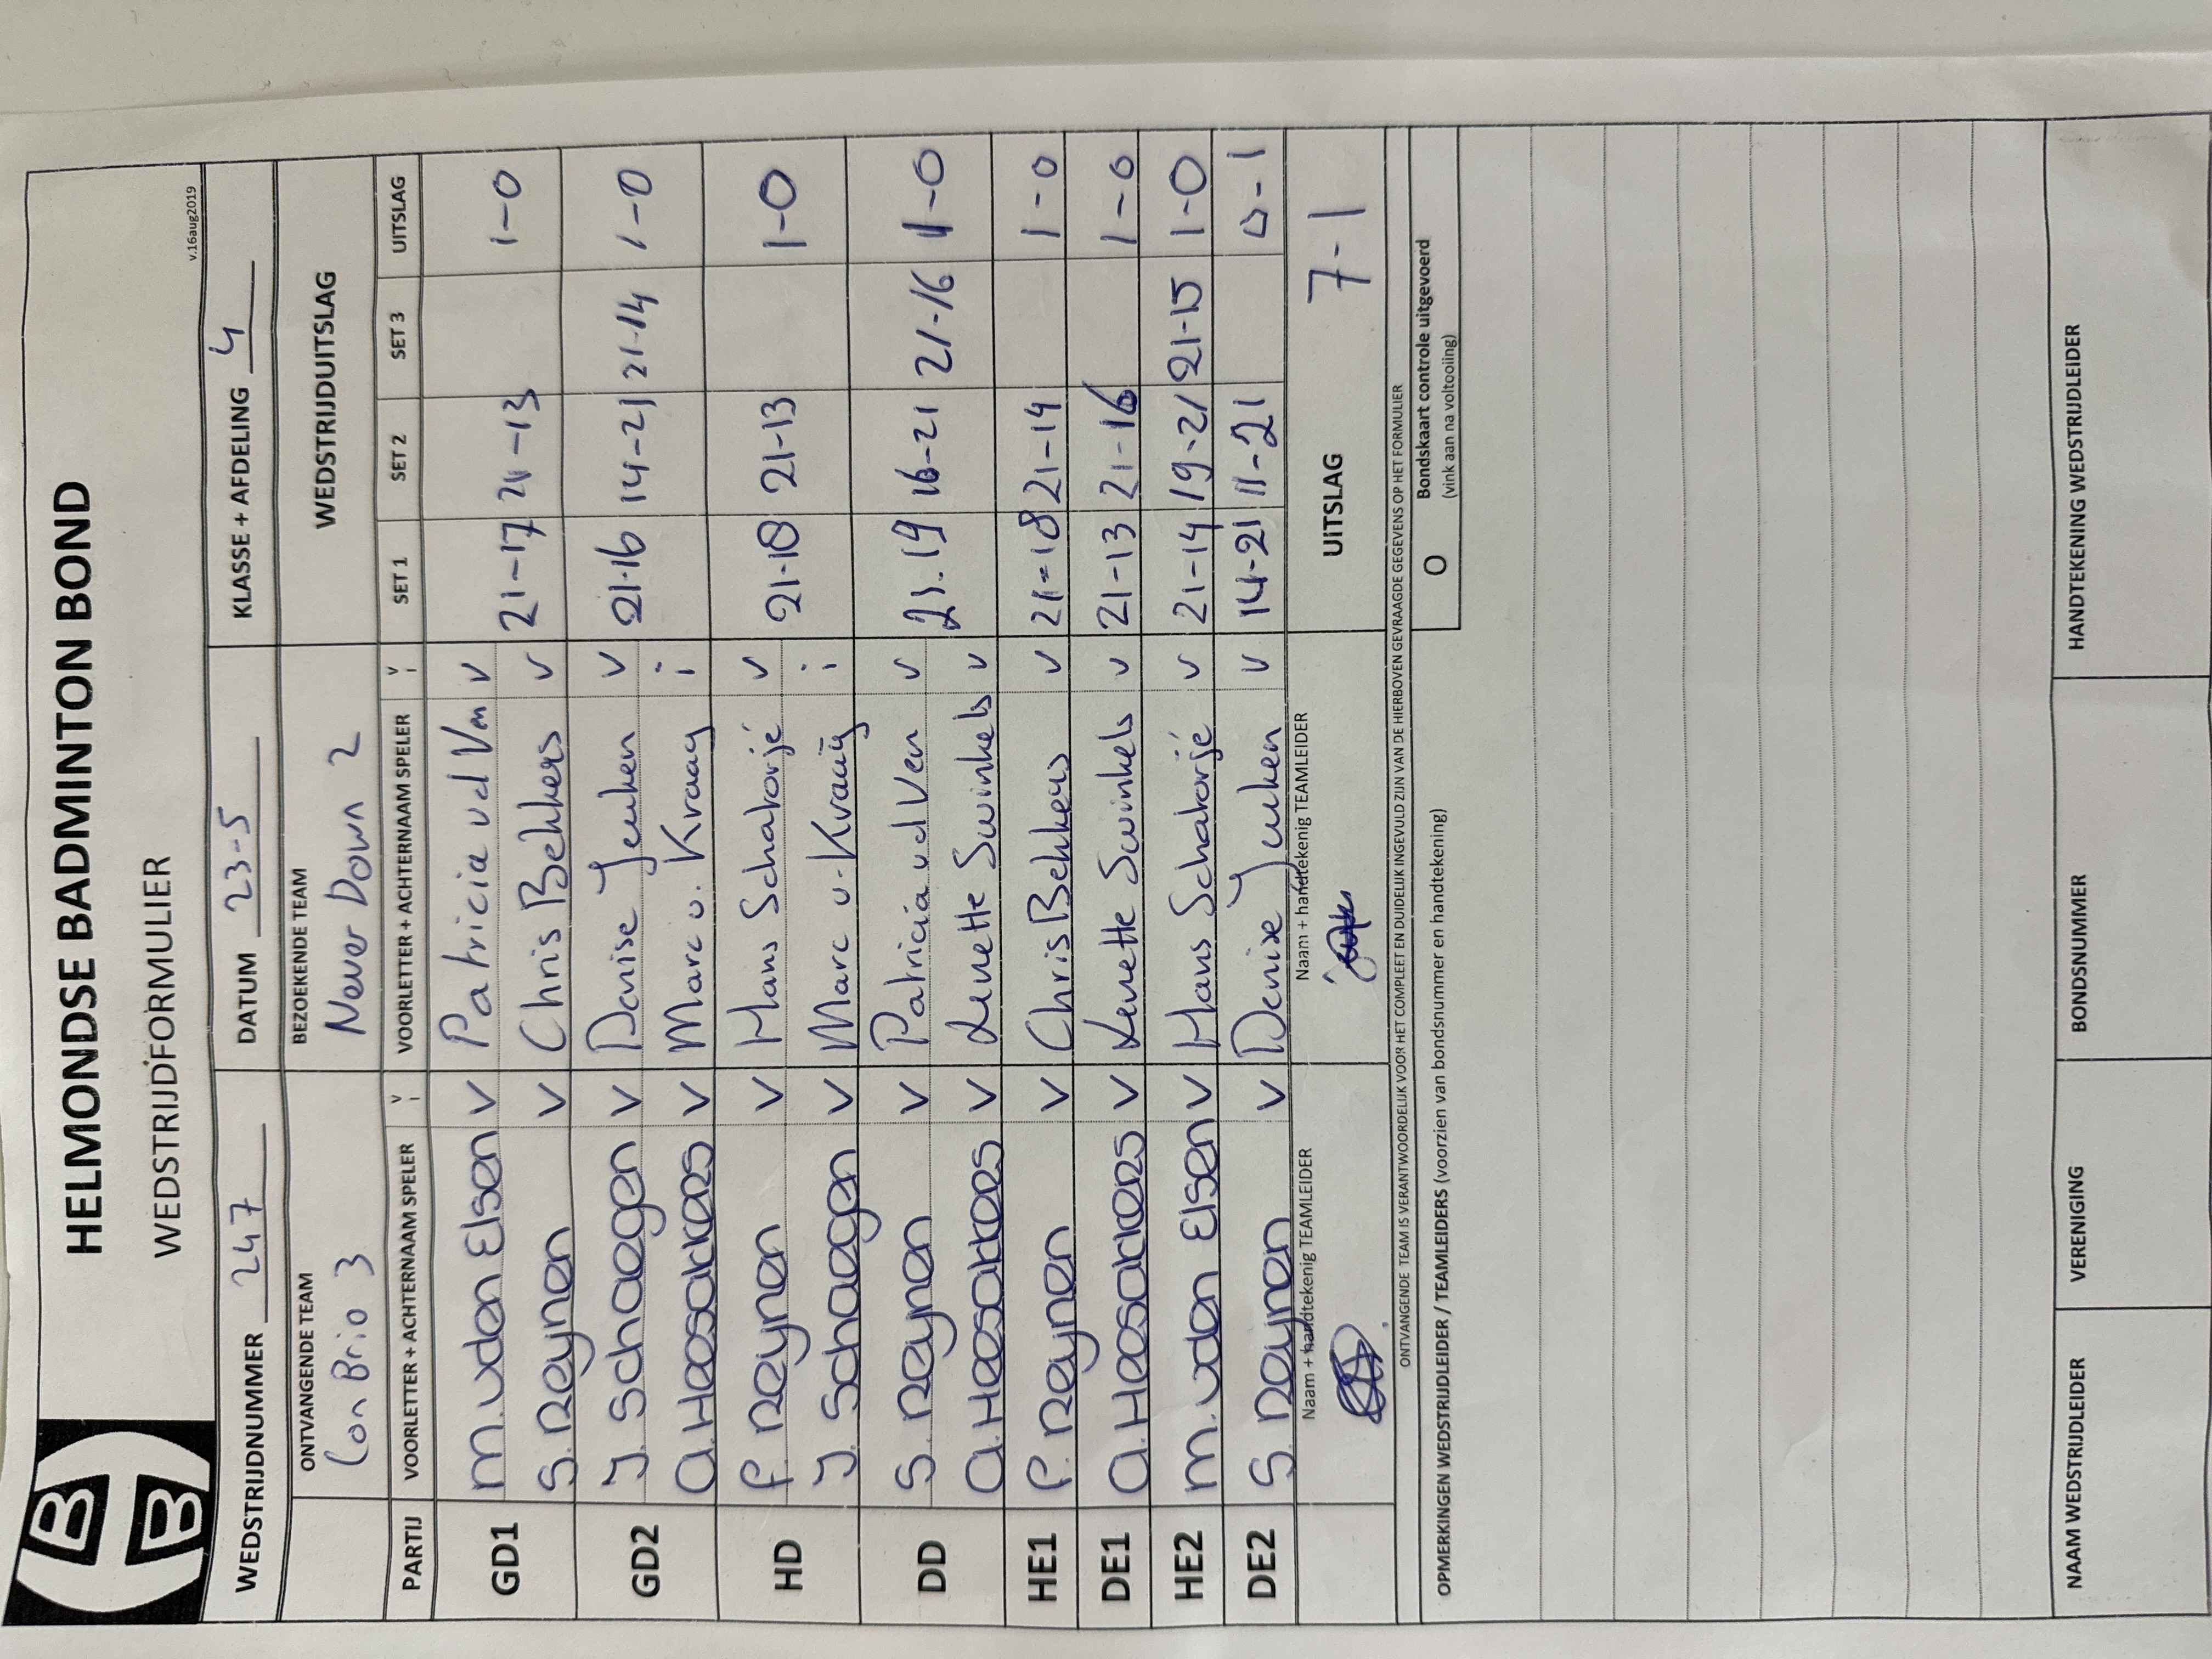 HELMONDSE BADMINTON BOND
WEDSTRIJDFORMULIER
v.16aug2019
WEDSTRIJDNUMMER 247 DATUM 23-5 KLASSE + AFDELING 4
ONTVANGENDE TEAM BEZOEKENDE TEAM WEDSTRIJDUITSLAG
Con Brio 3 Never Down 2
PARTIJ VOORLETTER + ACHTERNAAM SPELER v i VOORLETTER + ACHTERNAAM SPELER v i SET 1 SET 2 SET 3 UITSLAG
GD1 M. vden Elsen v Patricia vd Ven v 21-17 21-13 1-0
S. Reynen v Chris Bekkers v
GD2 J. Schaegen v Denise Jeuken v 21-16 14-21 21-14 1-0
A. Heesakkers v Marc v. Kraaij i
HD P. Reynen v Hans Schakorjé v 21-18 21-13 1-0
J. Schaegen v Marc v. Kraaij i
DD S. Reynen v Patricia vd Ven v 21-19 16-21 21-16 1-0
A. Heesakkers v Linette Swinkels v
HE1 P. Reynen v Chris Bekkers v 21-18 21-14 1-0
DE1 A. Heesakkers v Linette Swinkels v 21-13 21-16 1-0
HE2 M. vden Elsen v Hans Schakorjé v 21-14 19-21 21-15 1-0
DE2 S. Reynen v Denise Jeuken v 14-21 11-21 0-1
Naam + handtekenig TEAMLEIDER Naam + handtekenig TEAMLEIDER UITSLAG 7-1
ONTVANGENDE TEAM IS VERANTWOORDELIJK VOOR HET COMPLEET EN DUIDELIJK INGEVULD ZIJN VAN DE HIERBOVEN GEVRAAGDE GEGEVENS OP HET FORMULIER
OPMERKINGEN WEDSTRIJDLEIDER / TEAMLEIDERS (voorzien van bondsnummer en handtekening)
O Bondskaart controle uitgevoerd
(vink aan na voltooiing)
NAAM WEDSTRIJDLEIDER VERENIGING BONDSNUMMER HANDTEKENING WEDSTRIJDLEIDER